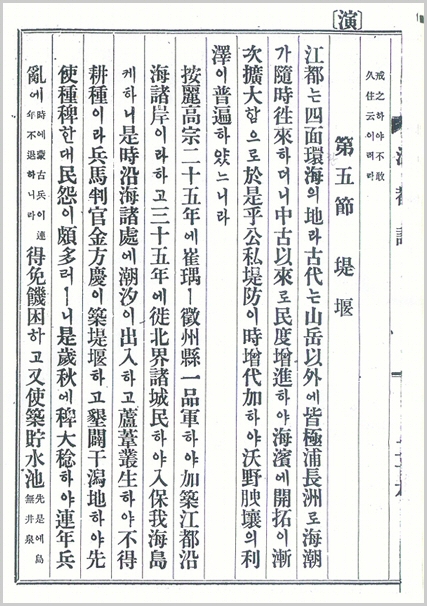 [演]
戒之하야不敢
久住云이러라
第五節 堤堰
江都는四面環海의地라古代는山岳以外에皆極浦長洲로海潮
가隨時往來하더니中古以來로民度增進하야海濱에開拓이漸
次擴大함으로於是乎公私堤防이時增代加하야沃野腴壤의利
澤이普遍하얏느니라
按麗高宗二十五年에崔瑀ㅣ徵州縣一品軍하야加築江都沿
海諸岸이라하고三十五年에徙北界諸城民하야入保我海島
케하니是時沿海諸處에潮汐이出入하고蘆葦叢生하야不得
耕種이라兵馬判官金方慶이築堤堰하고墾闢干潟地하야先
使種稗한대民怨이頗多러ㅣ니是歲秋에稗大稔하야連年兵
亂에 時에蒙古兵이連 年不退하니라 得免饑困하고又使築貯水池 先是에島 無井泉